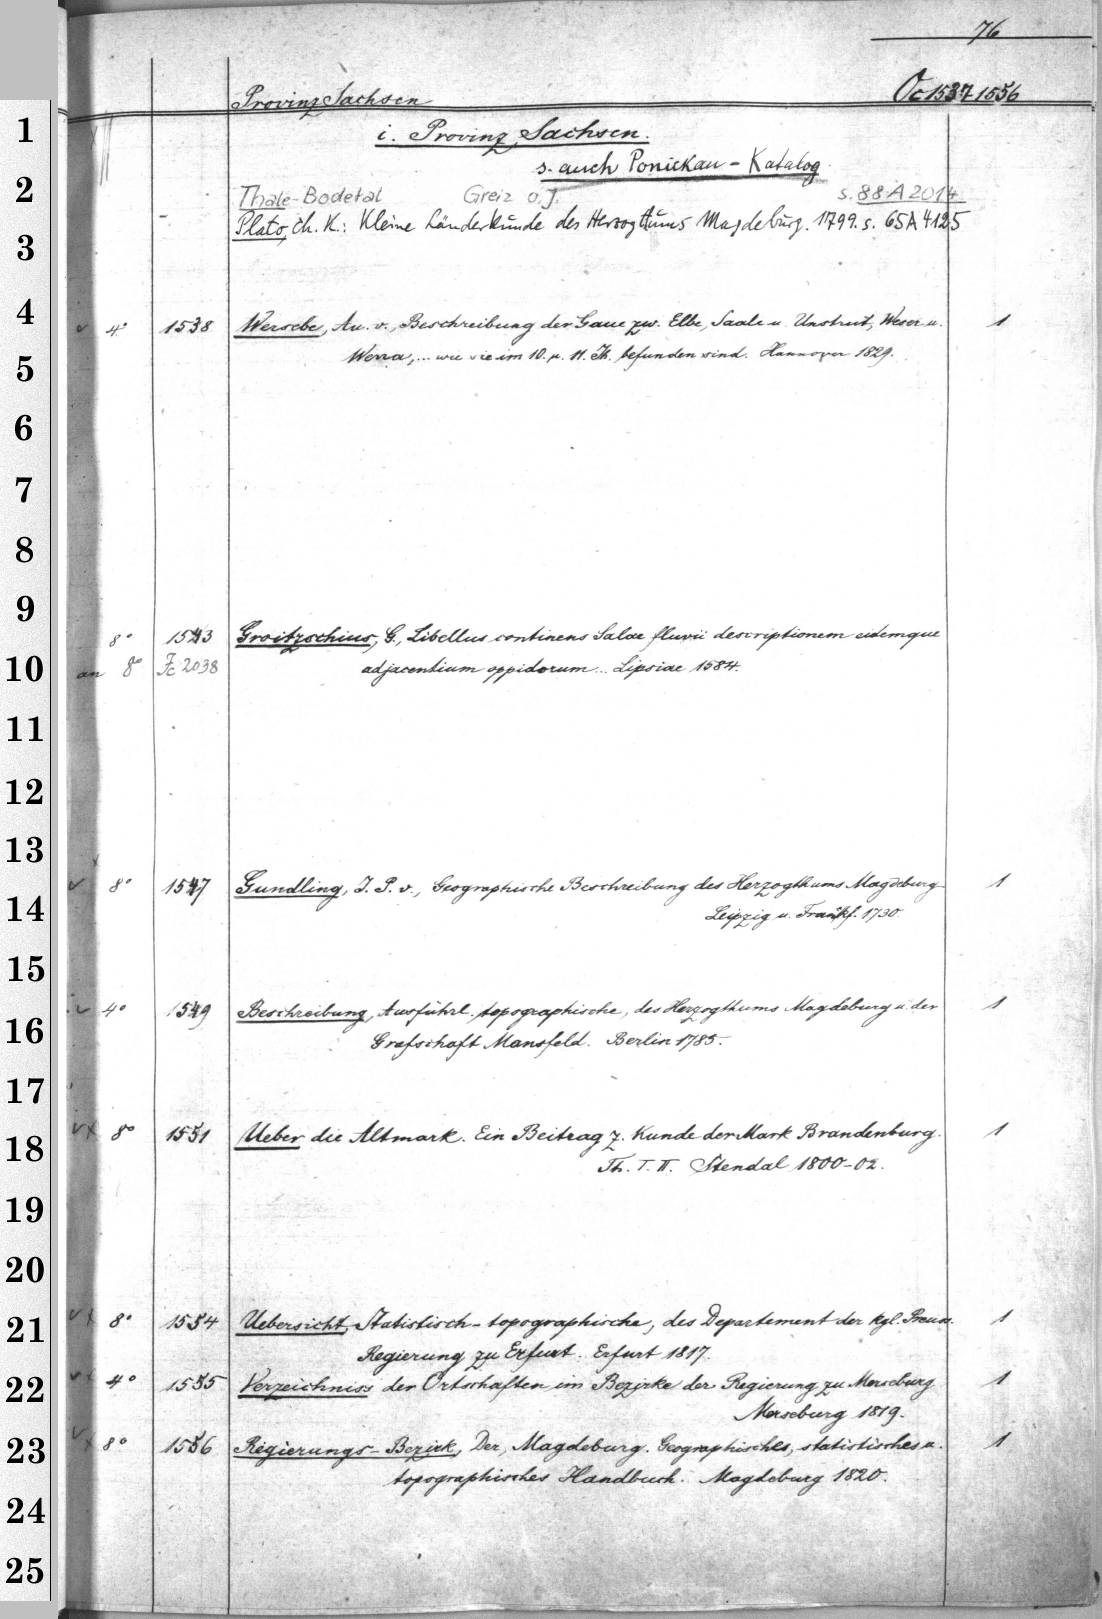 76
Provinz Sachsen
Oc 1537-1556
1
i. Provinz Sachsen.
s. auch Ponickau - Katalog
2
Thale-Bodetal Greiz o. J. s. 88 A 2014
Plato, Ch. K.: Kleine Länderkunde des Herzogthums Magdeburg. 1799. s. 65A4125
3
4
4° 1538 Wersebe, Au. v., Beschreibung der Gaue zw. Elbe, Saale u. Unstrut, Weser u. 1
Werra, ... wie sie im 10. u. 11. Jh. befunden sind. Hannover 1829.
5
6
7
8
9
8° 1543 Groitzschius, G., Libellus continens Salae fluvii descriptionem eidemque
10
an 8° Fc 2038 adjacentium oppidorum ... Lipsiae 1584.
11
12
13
8° 1547 Gundling, J. P. v., Geographische Beschreibung des Herzogthums Magdeburg 1
14
Leipzig u. Frankf. 1730.
15
4° 1549 Beschreibung, Ausführl. topographische, des Herzogthums Magdeburg u. der 1
16
Grafschaft Mansfeld. Berlin 1785.
17
18
8° 1551 Ueber die Altmark. Ein Beitrag z. Kunde der Mark Brandenburg. 1
Th. I. II. Stendal 1800-02.
19
20
21
8° 1554 Uebersicht, Statistisch-topographische, des Departement der kgl. Preuss. 1
Regierung zu Erfurt. Erfurt 1817.
22
4° 1555 Verzeichniss der Ortschaften im Bezirke der Regierung zu Merseburg 1
Merseburg 1819.
23
8° 1556 Regierungs-Bezirk, Der, Magdeburg. Geographisches, statistisches u. 1
topographisches Handbuch. Magdeburg 1820.
24
25